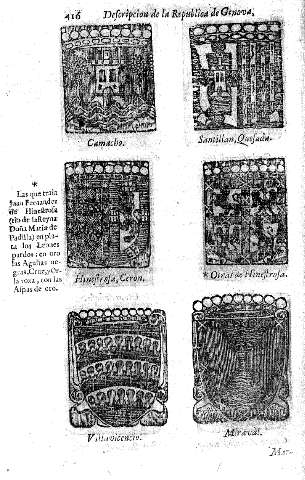 416 Descripcion de la Republica de Genova,
Camacho.
Santillan, Quesada.
*
Las que traia
Juan Fernandez
de Hinestrosa
tio de la Reyna
Doña Maria de
Padilla) en pla-
ta los Leones
pardos: en oro
las Aguilas ne-
gras, Cruz, y Or-
la roxa, con las
Aspas de oro.
Hinestrosa, Ceron.
* Otras de Hinestrosa.
Villavicencio.
Miraval.
Mar-